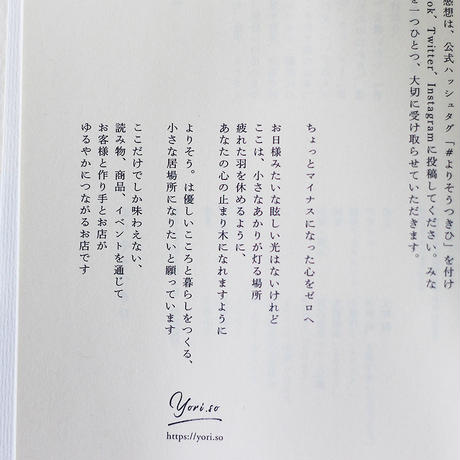 感想は、公式ハッシュタグ「#よりそうつきひ」を付け
ok、Twitter、Instagramに投稿してください。みな
一つひとつ、大切に受け取らせていただきます。
ちょっとマイナスになった心をゼロへ
お日様みたいな眩しい光はないけれど
ここは、小さなあかりが灯る場所
疲れた羽を休めるように、
あなたの心の止まり木になれますように
よりそう。は優しいこころと暮らしをつくる、
小さな居場所になりたいと願っています
ここだけでしか味わえない、
読み物、商品、イベントを通じて
お客様と作り手とお店が
ゆるやかにつながるお店です
Yori.so
https://yori.so